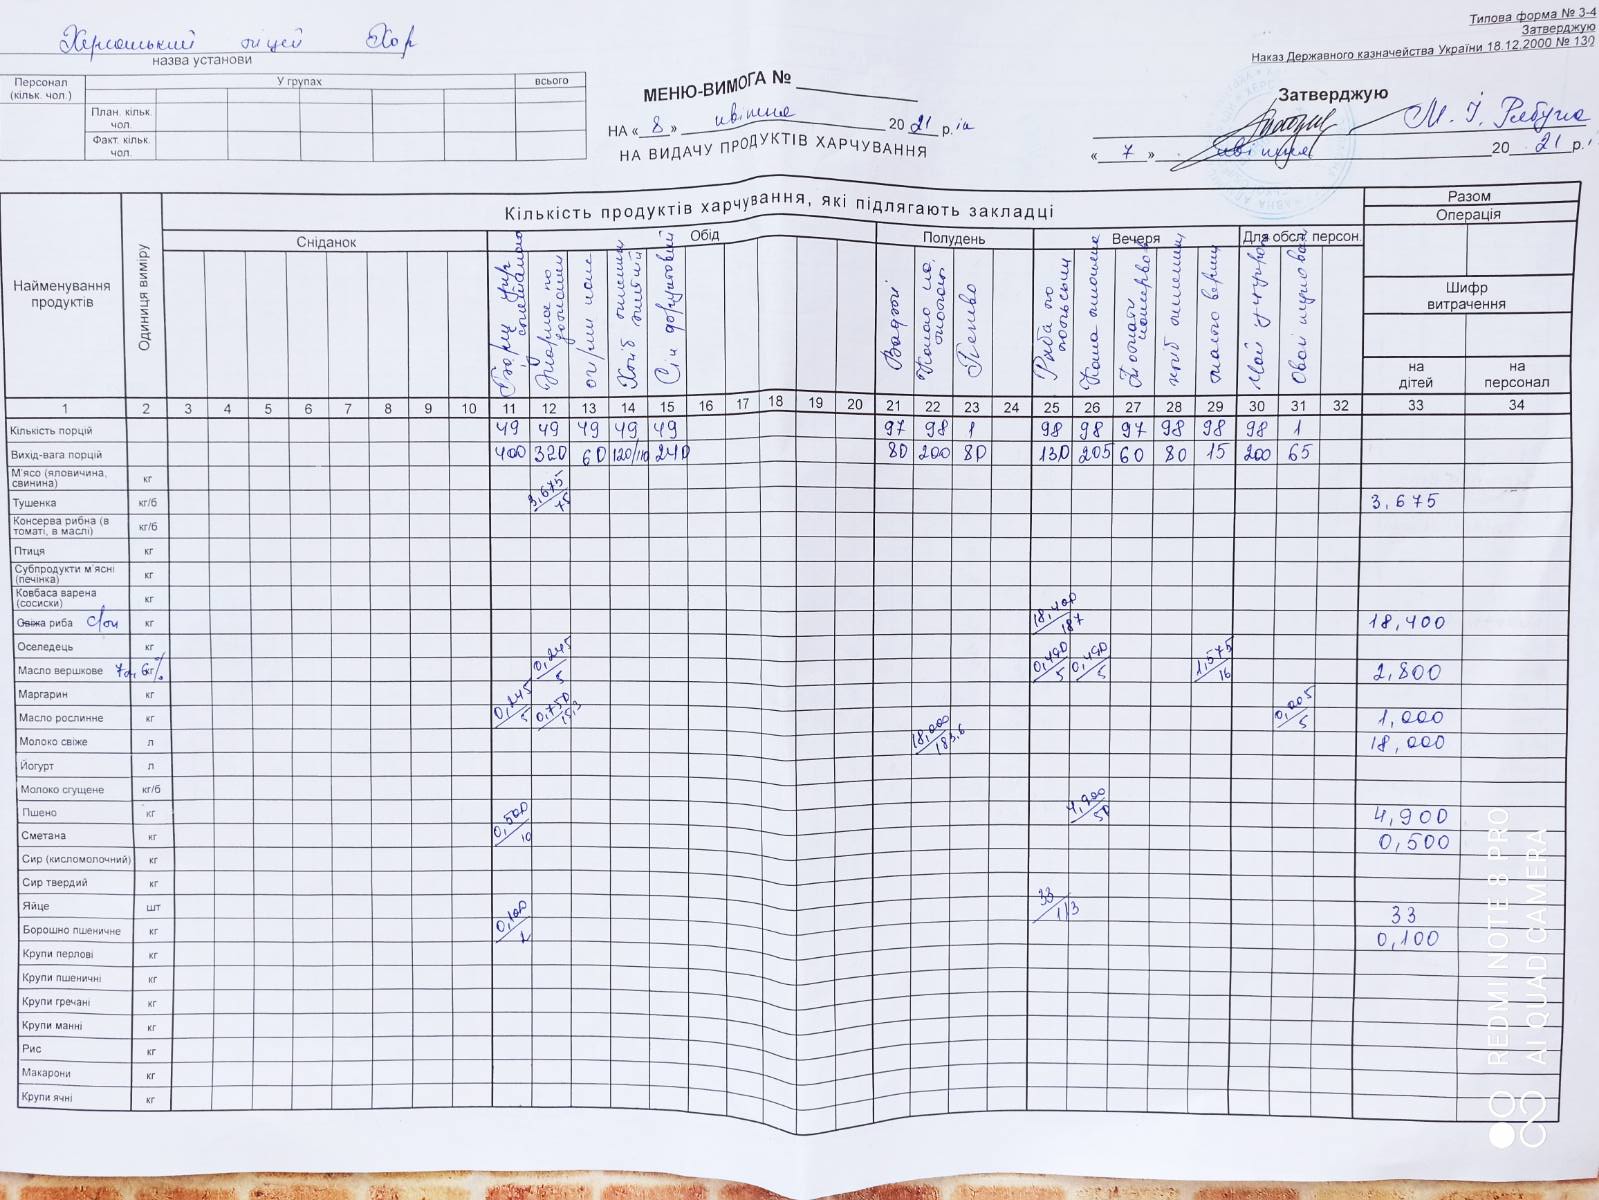 Типова форма № З-4
Затверджую
Наказ Державного казначейства України 18.12.2000 № 130
Херсонський ліцей ХОР
назва установи
Персонал (кільк. чол.) У групах всього
План. кільк. чол.
Факт. кільк. чол.
МЕНЮ-ВИМОГА №
НА « 8 » квітня 20 21 р.
НА ВИДАЧУ ПРОДУКТІВ ХАРЧУВАННЯ
Затверджую
М. І. Рябуха
« 7 » квітня 20 21 р.
Найменування продуктів
Одиниця виміру
Кількість продуктів харчування, які підлягають закладці
Разом
Операція
Сніданок Обід Полудень Вечеря Для обсл. персон.
Шифр витрачення
на дітей на персонал
Борщ укр сметаною
по
Хліб
Сік фруктовий
Какао
Печиво
Риба по польськи
Каша пшонна
хліб пшеничн
масло верш
1 2 3 4 5 6 7 8 9 10 11 12 13 14 15 16 17 18 19 20 21 22 23 24 25 26 27 28 29 30 31 32 33 34
Кількість порцій 49 49 49 49 49 97 98 1 98 98 97 98 98 98 1
Вихід-вага порцій 400 320 60 120/110 240 80 200 80 130 205 60 80 15 200 65
М'ясо (яловичина, свинина) кг
Тушенка кг/б 3,675/75 3,675
Консерва рибна (в томаті, в маслі) кг/б
Птиця кг
Субпродукти м'ясні (печінка) кг
Ковбаса варена (сосиски) кг
Свіжа риба с/м кг 18,400/187 18,400
Оселедець кг
Масло вершкове 72,6% кг 0,245/5 0,490/5 0,490/5 1,575/16 2,800
Маргарин кг
Масло рослинне кг 0,245/5 0,750/15,3 0,005/5 1,000
Молоко свіже л 18,000/183,6 18,000
Йогурт л
Молоко сгущене кг/б
Пшено кг 4,900/50 4,900
Сметана кг 0,500/10 0,500
Сир (кисломолочний) кг
Сир твердий кг
Яйце шт 33/1/3 33
Борошно пшеничне кг 0,100/2 0,100
Крупи перлові кг
Крупи пшеничні кг
Крупи гречані кг
Крупи манні кг
Рис кг
Макарони кг
Крупи ячні кг
REDMI NOTE 8 PRO
AI QUAD CAMERA